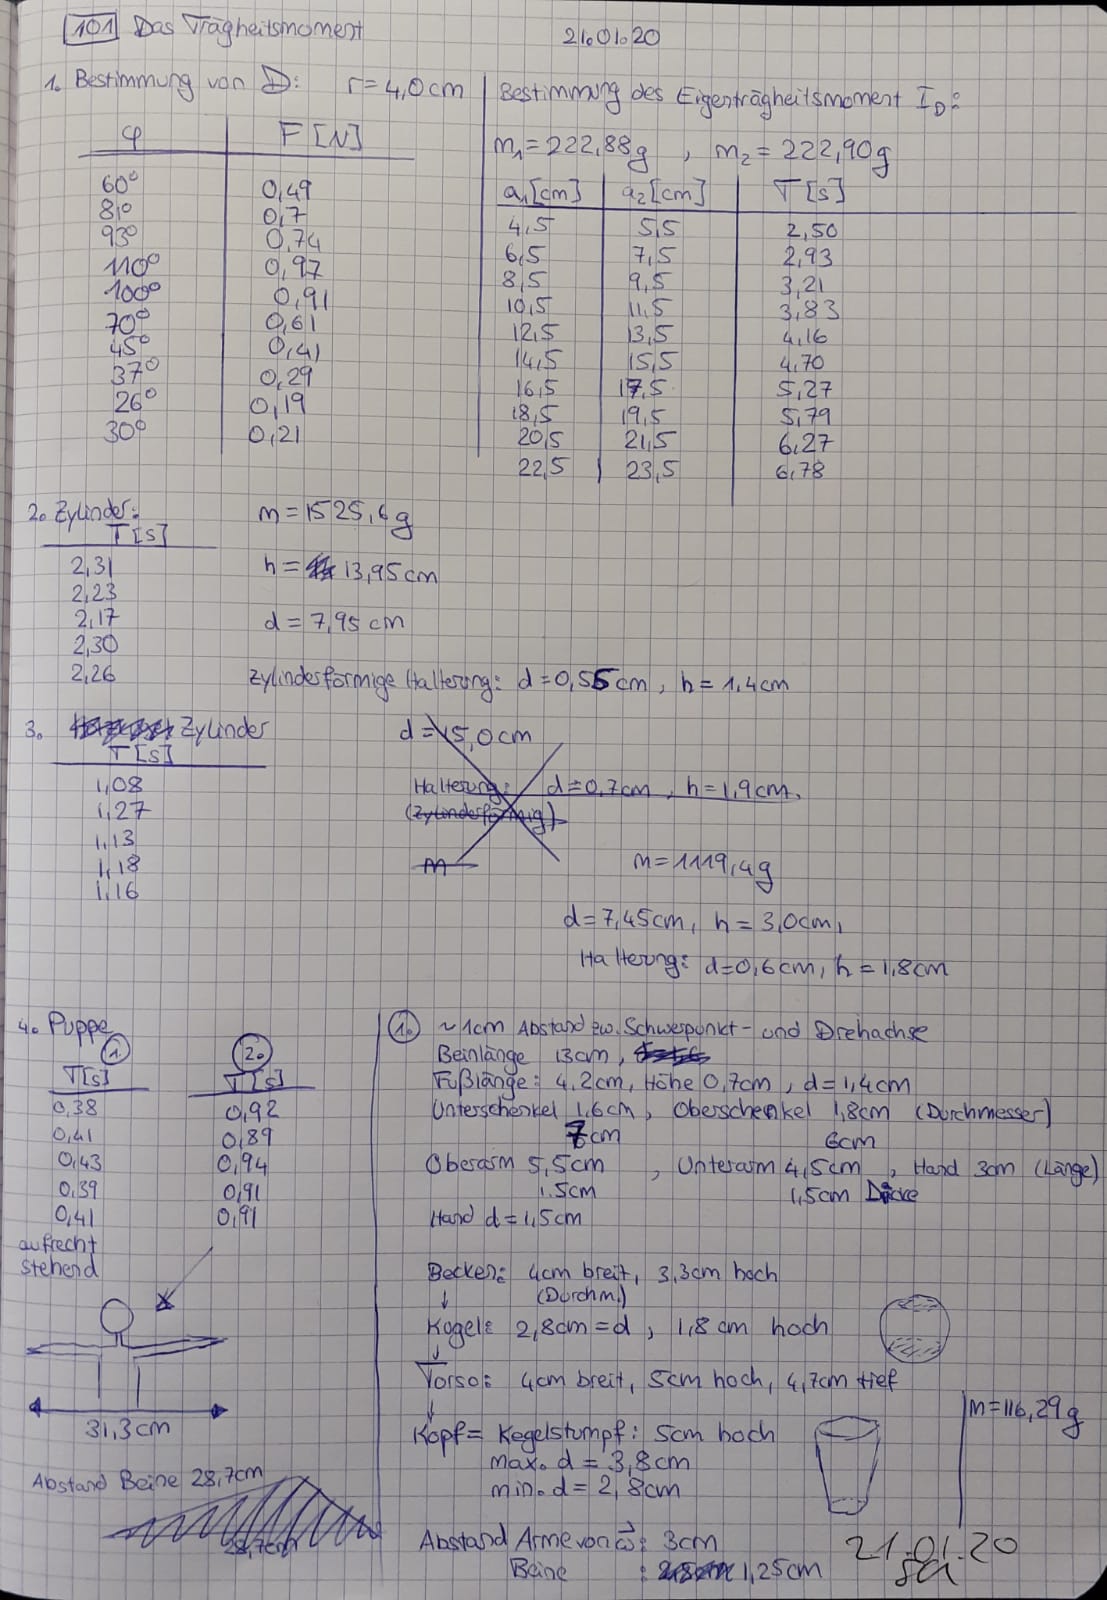 101 Das Trägheitsmoment 21.01.20
1. Bestimmung von D: r=4,0cm
φ F [N]
60° 0,49
81° 0,7
93° 0,74
110° 0,97
100° 0,91
70° 0,61
45° 0,41
37° 0,29
26° 0,19
30° 0,21
Bestimmung des Eigenträgheitsmoment I_D:
m₁=222,88g , m₂=222,90g
a₁[cm] a₂[cm] T[s]
4,5 5,5 2,50
6,5 7,5 2,93
8,5 9,5 3,21
10,5 11,5 3,83
12,5 13,5 4,16
14,5 15,5 4,70
16,5 17,5 5,27
18,5 19,5 5,79
20,5 21,5 6,27
22,5 23,5 6,78
2. Zylinder: m=1525,6g
T[s]
2,31 h= 13,95cm
2,23
2,17 d=7,95cm
2,30
2,26 Zylinderförmige Halterung: d=0,55cm, h=1,4cm
3. Zylinder d=15,0cm
T[s]
1,08 Halterung: d=0,7cm, h=1,9cm,
1,27 (Zylinderförmig)
1,13
1,18 m m=1119,4g
1,16
d=7,45cm, h=3,0cm,
Halterung: d=0,6cm, h=1,8cm
4. Puppe
1. 2.
T[s] T[s]
0,38 0,92
0,41 0,89
0,43 0,94
0,39 0,91
0,41 0,91
aufrecht
stehend
31,3cm
Abstand Beine 28,7cm
28,7cm
1. ~1cm Abstand zw. Schwerpunkt- und Drehachse
Beinlänge 13cm,
Fußlänge: 4,2cm, Höhe 0,7cm, d=1,4cm
Unterschenkel 1,6cm, Oberschenkel 1,8cm (Durchmesser)
7cm 6cm
Oberarm 5,5cm, Unterarm 4,5cm, Hand 3cm (Länge)
1,5cm 1,5cm Dicke
Hand d=1,5cm
Becken: 4cm breit, 3,3cm hoch
↓ (Durchm.)
Kugel: 2,8cm=d, 1,8cm hoch
↓
Torso: 4cm breit, 5cm hoch, 4,7cm tief
↓
Kopf= Kegelstumpf: 5cm hoch
max. d=3,8cm
min. d=2,8cm
m=116,29g
Abstand Arme von ω⃗: 3cm
Beine : 1,25cm
21.01.20